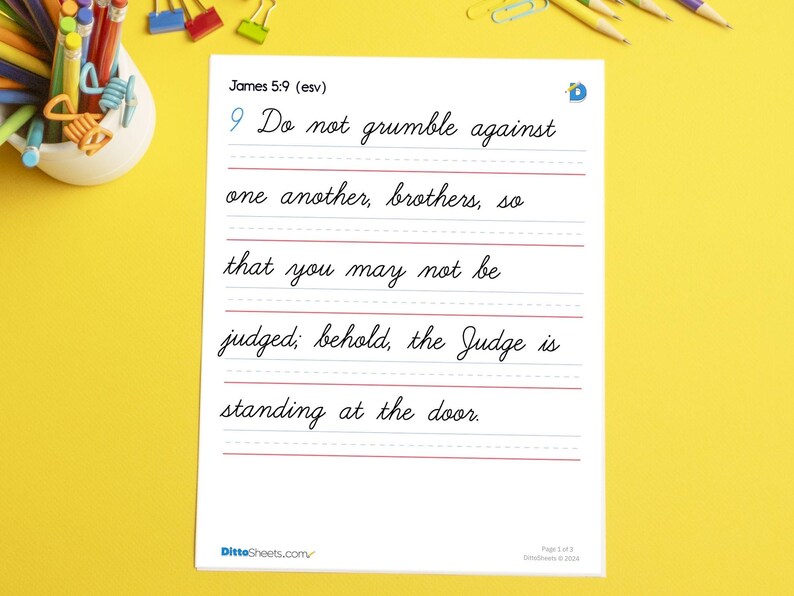 James 5:9 (esv)
D
9 Do not grumble against
one another, brothers, so
that you may not be
judged; behold, the Judge is
standing at the door.
DittoSheets.com
Page 1 of 3
DittoSheets © 2024